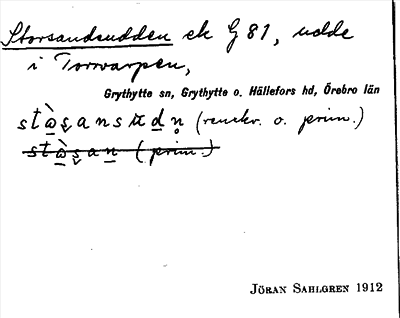 Storsandsudden ek G 81, udde
i Torrvarpen,
Grythytte sn, Grythytte o. Hällefors hd, Örebro län
(renskr. o. prim.)
(prim.)
JÖRAN SAHLGREN 1912